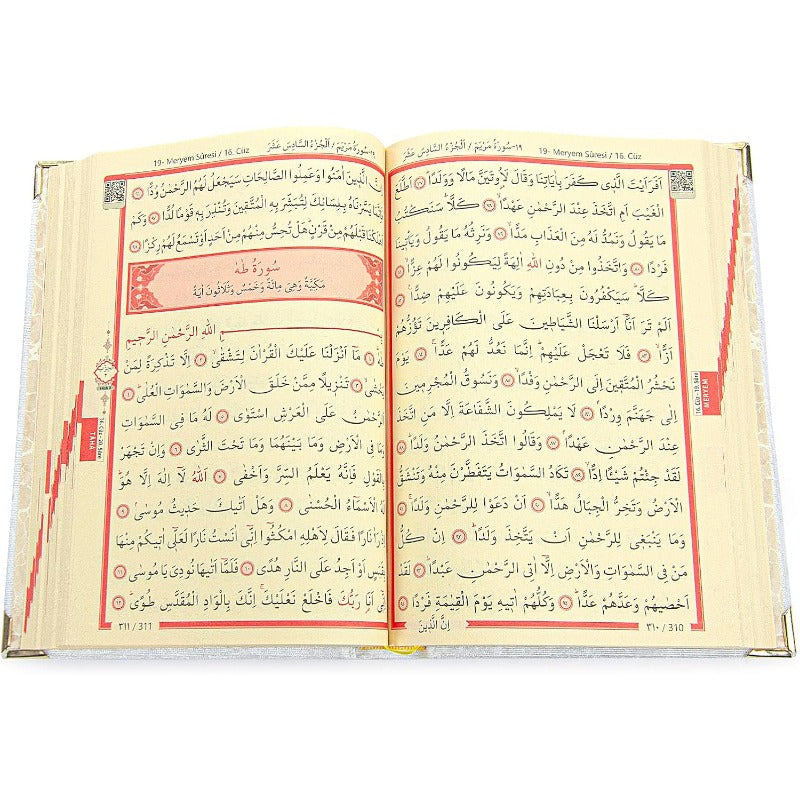 ١٩-سُورَةُ مَرْيَمَ / اَلْجُزْءُ السَّادِسَ عَشَرَ
19- Meryem Sûresi / 16. Cüz
اَفَرَاَيْتَ الَّذ۪ي كَفَرَ بِاٰيَاتِنَا وَقَالَ لَاُو۫تَيَنَّ مَالًا وَوَلَدًاۜ ﴿٧٧﴾ اَطَّلَعَ
الْغَيْبَ اَمِ اتَّخَذَ عِنْدَ الرَّحْمٰنِ عَهْدًاۙ ﴿٧٨﴾ كَلَّاۜ سَنَكْتُبُ
مَا يَقُولُ وَنَمُدُّ لَهُ مِنَ الْعَذَابِ مَدًّاۙ ﴿٧٩﴾ وَنَرِثُهُ مَا يَقُولُ وَيَأْت۪ينَا
فَرْدًا ﴿٨٠﴾ وَاتَّخَذُوا مِنْ دُونِ اللّٰهِ اٰلِهَةً لِيَكُونُوا لَهُمْ عِزًّاۙ ﴿٨١﴾
كَلَّاۜ سَيَكْفُرُونَ بِعِبَادَتِهِمْ وَيَكُونُونَ عَلَيْهِمْ ضِدًّا۟ ﴿٨٢﴾
اَلَمْ تَرَ اَنَّٓا اَرْسَلْنَا الشَّيَاط۪ينَ عَلَى الْكَافِر۪ينَ تَؤُزُّهُمْ
اَزًّاۙ ﴿٨٣﴾ فَلَا تَعْجَلْ عَلَيْهِمْۜ اِنَّمَا نَعُدُّ لَهُمْ عَدًّاۚ ﴿٨٤﴾ يَوْمَ
نَحْشُرُ الْمُتَّق۪ينَ اِلَى الرَّحْمٰنِ وَفْدًاۙ ﴿٨٥﴾ وَنَسُوقُ الْمُجْرِم۪ينَ
اِلٰى جَهَنَّمَ وِرْدًاۢ ﴿٨٦﴾ لَا يَمْلِكُونَ الشَّفَاعَةَ اِلَّا مَنِ اتَّخَذَ
عِنْدَ الرَّحْمٰنِ عَهْدًاۢ ﴿٨٧﴾ وَقَالُوا اتَّخَذَ الرَّحْمٰنُ وَلَدًاۜ ﴿٨٨﴾
لَقَدْ جِئْتُمْ شَيْـًٔا اِدًّاۙ ﴿٨٩﴾ تَكَادُ السَّمٰوَاتُ يَتَفَطَّرْنَ مِنْهُ وَتَنْشَقُّ
الْاَرْضُ وَتَخِرُّ الْجِبَالُ هَدًّاۙ ﴿٩٠﴾ اَنْ دَعَوْا لِلرَّحْمٰنِ وَلَدًاۚ ﴿٩١﴾
وَمَا يَنْبَغ۪ي لِلرَّحْمٰنِ اَنْ يَتَّخِذَ وَلَدًاۜ ﴿٩٢﴾ اِنْ كُلُّ
مَنْ فِي السَّمٰوَاتِ وَالْاَرْضِ اِلَّٓا اٰتِي الرَّحْمٰنِ عَبْدًاۜ ﴿٩٣﴾ لَقَدْ
اَحْصٰيهُمْ وَعَدَّهُمْ عَدًّاۜ ﴿٩٤﴾ وَكُلُّهُمْ اٰت۪يهِ يَوْمَ الْقِيٰمَةِ فَرْدًا ﴿٩٥﴾
اِنَّ الَّذ۪ينَ
٣١٠ / 310
16. Cüz - 19. Sûre
MERYEM
سُورَةُ مَرْيَمَ / اَلْجُزْءُ السَّادِسَ عَشَرَ
19- Meryem Sûresi / 16. Cüz
الَّذ۪ينَ اٰمَنُوا وَعَمِلُوا الصَّالِحَاتِ سَيَجْعَلُ لَهُمُ الرَّحْمٰنُ وُدًّا ﴿٩٦﴾
يَسَّرْنَاهُ بِلِسَانِكَ لِتُبَشِّرَ بِهِ الْمُتَّق۪ينَ وَتُنْذِرَ بِه۪ قَوْمًا لُدًّا ﴿٩٧﴾ وَكَمْ
اَهْلَكْنَا قَبْلَهُمْ مِنْ قَرْنٍۜ هَلْ تُحِسُّ مِنْهُمْ مِنْ اَحَدٍ اَوْ تَسْمَعُ لَهُمْ رِكْزًا ﴿٩٨﴾
سُورَةُ طٰهٰ
مَكِّيَّةٌ وَهِيَ مِائَةٌ وَخَمْسٌ وَثَلَاثُونَ اٰيَةً
اللّٰهِ الرَّحْمٰنِ الرَّح۪يمِ
مَٓا اَنْزَلْنَا عَلَيْكَ الْقُرْاٰنَ لِتَشْقٰىۙ ﴿٢﴾ اِلَّا تَذْكِرَةً لِمَنْ
يَخْشٰىۙ ﴿٣﴾ تَنْز۪يلًا مِمَّنْ خَلَقَ الْاَرْضَ وَالسَّمٰوَاتِ الْعُلٰىۜ ﴿٤﴾
عَلَى الْعَرْشِ اسْتَوٰى ﴿٥﴾ لَهُ مَا فِي السَّمٰوَاتِ
وَمَا فِي الْاَرْضِ وَمَا بَيْنَهُمَا وَمَا تَحْتَ الثَّرٰى ﴿٦﴾ وَاِنْ تَجْهَرْ
بِالْقَوْلِ فَاِنَّهُ يَعْلَمُ السِّرَّ وَاَخْفٰى ﴿٧﴾ اَللّٰهُ لَٓا اِلٰهَ اِلَّا هُوَۜ
لَهُ الْاَسْمَٓاءُ الْحُسْنٰى ﴿٨﴾ وَهَلْ اَتٰيكَ حَد۪يثُ مُوسٰىۢ ﴿٩﴾
نَارًا فَقَالَ لِاَهْلِهِ امْكُثُٓوا اِنّ۪ٓي اٰنَسْتُ نَارًا لَعَلّ۪ٓي اٰت۪يكُمْ مِنْهَا
بِقَبَسٍ اَوْ اَجِدُ عَلَى النَّارِ هُدًى ﴿١٠﴾ فَلَمَّٓا اَتٰيهَا نُودِيَ يَا مُوسٰى ﴿١١﴾
اَنَا۬ رَبُّكَ فَاخْلَعْ نَعْلَيْكَۚ اِنَّكَ بِالْوَادِ الْمُقَدَّسِ طُوًىۜ ﴿١٢﴾
٣١١ / 311
16. Cüz - 20. Sûre
TÂHÂ